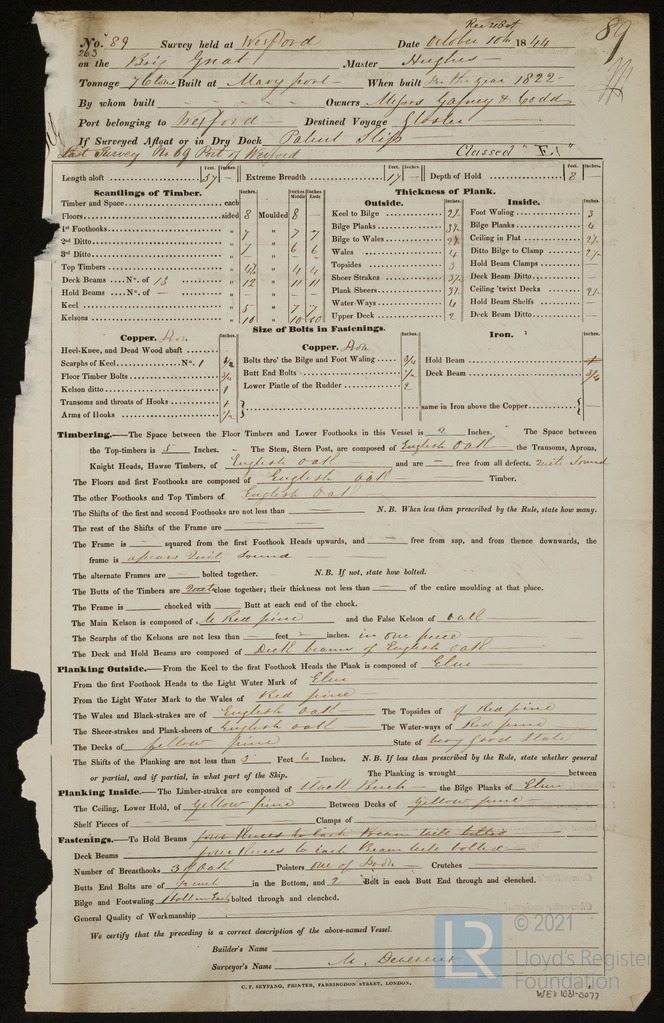 89
No. 89 Survey held at Wexford Date October 10th 1844
263
on the Brig Gnat Master Hughes
Tonnage 76 tons Built at Maryport When built In the year 1822
By whom built Owners Messrs Gafney & Codd
Port belonging to Wexford Destined Voyage Gloster
If Surveyed Afloat or in Dry Dock Patent Slip
Last Survey No 69 Port of Wexford Classed "E1"
Length aloft 57 Extreme Breadth 17 Depth of Hold 8
Feet. Inches. Feet. Inches. Feet. Inches.
Scantlings of Timber. Thickness of Plank.
Outside. Inside.
Timber and Space each Inches. Inches Middle Inches Ends
Floors sided 8 Moulded 8
1st Foothooks " 7 " 7 7
2nd Ditto " 7 " 6 6
3rd Ditto "
Top Timbers " 4½ " 4 4
Deck Beams No. of 13 " 12 " 11 11
Hold Beams No. of "
Keel " 5 " 7 7
Kelsons " 10 " 10 10
Keel to Bilge 2½
Bilge Planks 3½
Bilge to Wales 2½
Wales 4
Topsides 3
Sheer Strakes 3½
Plank Sheers
Water-Ways 4
Upper Deck 2
Foot Waling 3
Bilge Planks 4
Ceiling in Flat 2½
Ditto Bilge to Clamp 2½
Hold Beam Clamps
Deck Beam Ditto
Ceiling 'twixt Decks
Hold Beam Shelfs
Deck Beam Ditto
Size of Bolts in Fastenings.
Copper. Iron
Heel-Knee, and Dead Wood abaft
Scarphs of Keel No. 1
Floor Timber Bolts ¾
Kelson ditto 1
Transoms and throats of Hooks 1
Arms of Hooks ½
Copper. Iron
Bolts thro' the Bilge and Foot Waling ¾
Butt End Bolts ½
Lower Pintle of the Rudder 2
Iron.
Hold Beam
Deck Beam ¾
same in Iron above the Copper
Timbering.—The Space between the Floor Timbers and Lower Foothooks in this Vessel is 2 Inches. The Space between
the Top-timbers is 5 Inches. The Stem, Stern Post, are composed of English Oak the Transoms, Aprons,
Knight Heads, Hawse Timbers, of English Oak and are free from all defects. Quite Sound
The Floors and first Foothooks are composed of English Oak Timber.
The other Foothooks and Top Timbers of English Oak
The Shifts of the first and second Foothooks are not less than N.B. When less than prescribed by the Rule, state how many.
The rest of the Shifts of the Frame are
The Frame is squared from the first Foothook Heads upwards, and free from sap, and from thence downwards, the
frame is apears Quit Sound
The alternate Frames are bolted together. N.B. If not, state how bolted.
The Butts of the Timbers are close together; their thickness not less than of the entire moulding at that place.
The Frame is chocked with Butt at each end of the chock.
The Main Kelson is composed of Red pine and the False Kelson of Oak
The Scarphs of the Kelsons are not less than feet inches. in one piece
The Deck and Hold Beams are composed of Deck beams of English Oak
Planking Outside.—From the Keel to the first Foothook Heads the Plank is composed of Elm
From the first Foothook Heads to the Light Water Mark of Elm
From the Light Water Mark to the Wales of Red pine
The Wales and Black-strakes are of English Oak The Topsides of of Red pine
The Sheer-strakes and Plank-sheers of English Oak The Water-ways of Red pine
The Decks of Yellow pine State of Very good State
The Shifts of the Planking are not less than 5 Feet 6 Inches. N.B. If less than prescribed by the Rule, state whether general
or partial, and if partial, in what part of the Ship. The Planking is wrought between
Planking Inside.—The Limber-strakes are composed of Black Birch the Bilge Planks of Elm
The Ceiling, Lower Hold, of Yellow pine Between Decks of Yellow pine
Shelf Pieces of Clamps of
Fastenings.—To Hold Beams four Knees to Each Beam well bolted
Deck Beams four Knees to each Beam well bolted
Number of Breasthooks 3 of Oak Pointers One of Iron Crutches
Butts End Bolts are of in the Bottom, and 2 Bolt in each Butt End through and clenched.
Bilge and Footwaling bolted through and clenched.
General Quality of Workmanship
We certify that the preceding is a correct description of the above-named Vessel.
Builder's Name
Surveyor's Name M. Devereux
C. F. SEYFANG, PRINTER, FARRINGDON STREET, LONDON.
LR
© 2021
Lloyd's Register
Foundation
WEX 1031-0077